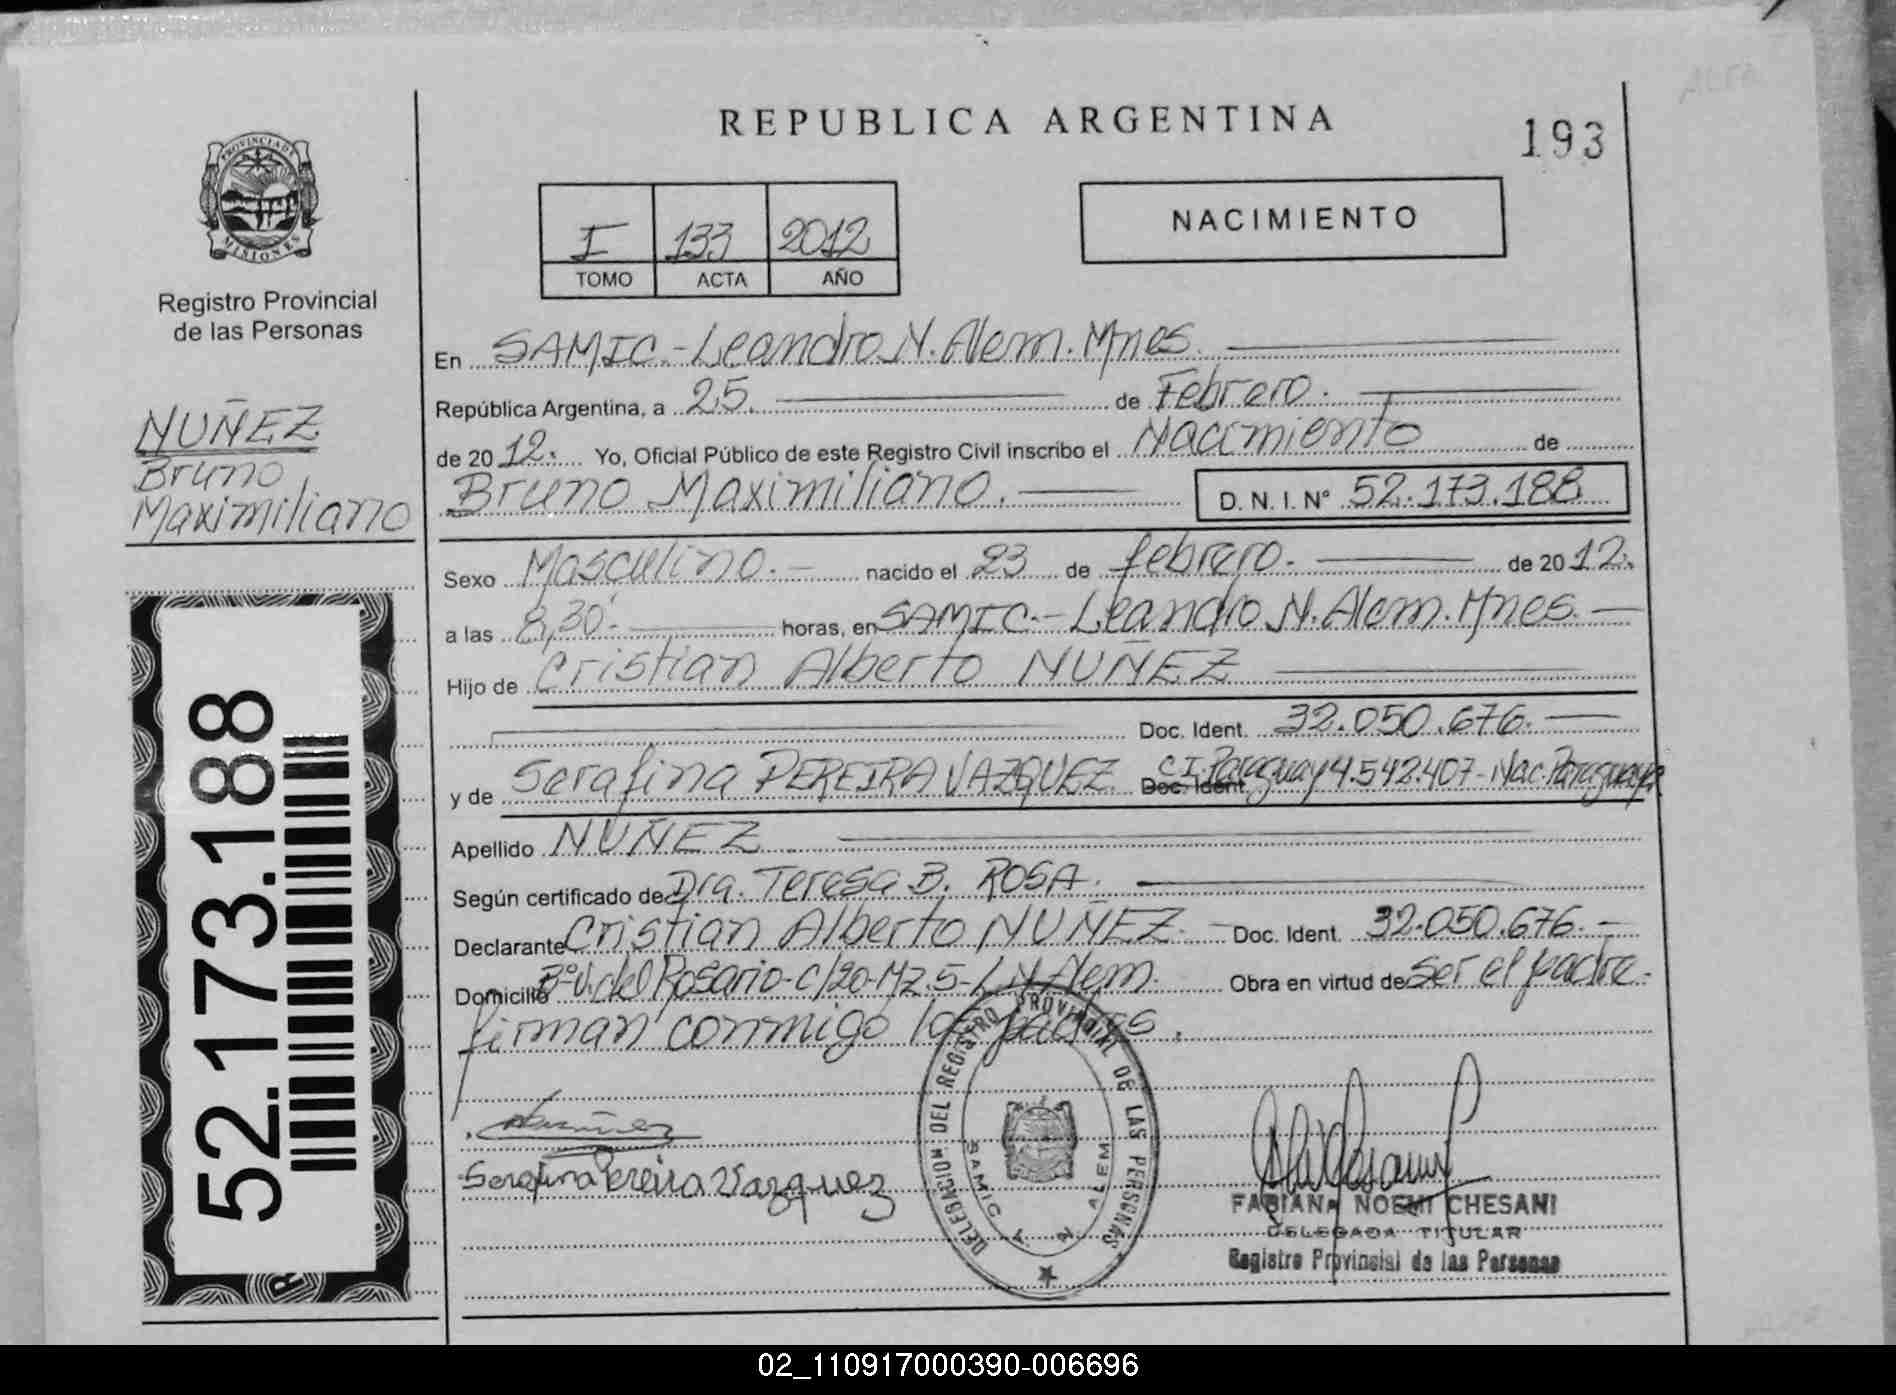 REPUBLICA ARGENTINA
193
PROVINCIA DE
MISIONES
Registro Provincial
de las Personas
I 133 2012
TOMO ACTA AÑO
NACIMIENTO
NUÑEZ
Bruno
Maximiliano
52.173.188
En SAMIC.-Leandro N. Alem. Mnes.
República Argentina, a 25. de Febrero.
de 2012. Yo, Oficial Público de este Registro Civil inscribo el Nacimiento de
Bruno Maximiliano. D.N.I. Nº 52.173.188
Sexo Masculino.- nacido el 23 de febrero.- de 2012.
a las 8,30'- horas, en SAMIC.-Leandro N. Alem. Mnes.
Hijo de Cristian Alberto NUÑEZ
Doc. Ident. 32.050.676.
y de Serafina PEREIRA VAZQUEZ Doc. Ident. C.I. Paraguay 4.542.407-Nac. Paraguaya
Apellido NUÑEZ
Según certificado de Dra. Teresa B. ROSA.
Declarante Cristian Alberto NUÑEZ.- Doc. Ident. 32.050.676.-
Domicilio Bº V. del Rosario-C/20-Mz.5-L.N.Alem. Obra en virtud de ser el padre.-
firman conmigo los padres.
Nuñez
Serafina Pereira Vazquez
DELEGACION DEL REGISTRO PROVINCIAL DE LAS PERSONAS
SAMIC L. N. ALEM
FABIANA NOEMI CHESANI
DELEGADA TITULAR
Registro Provincial de las Personas
02_110917000390-006696